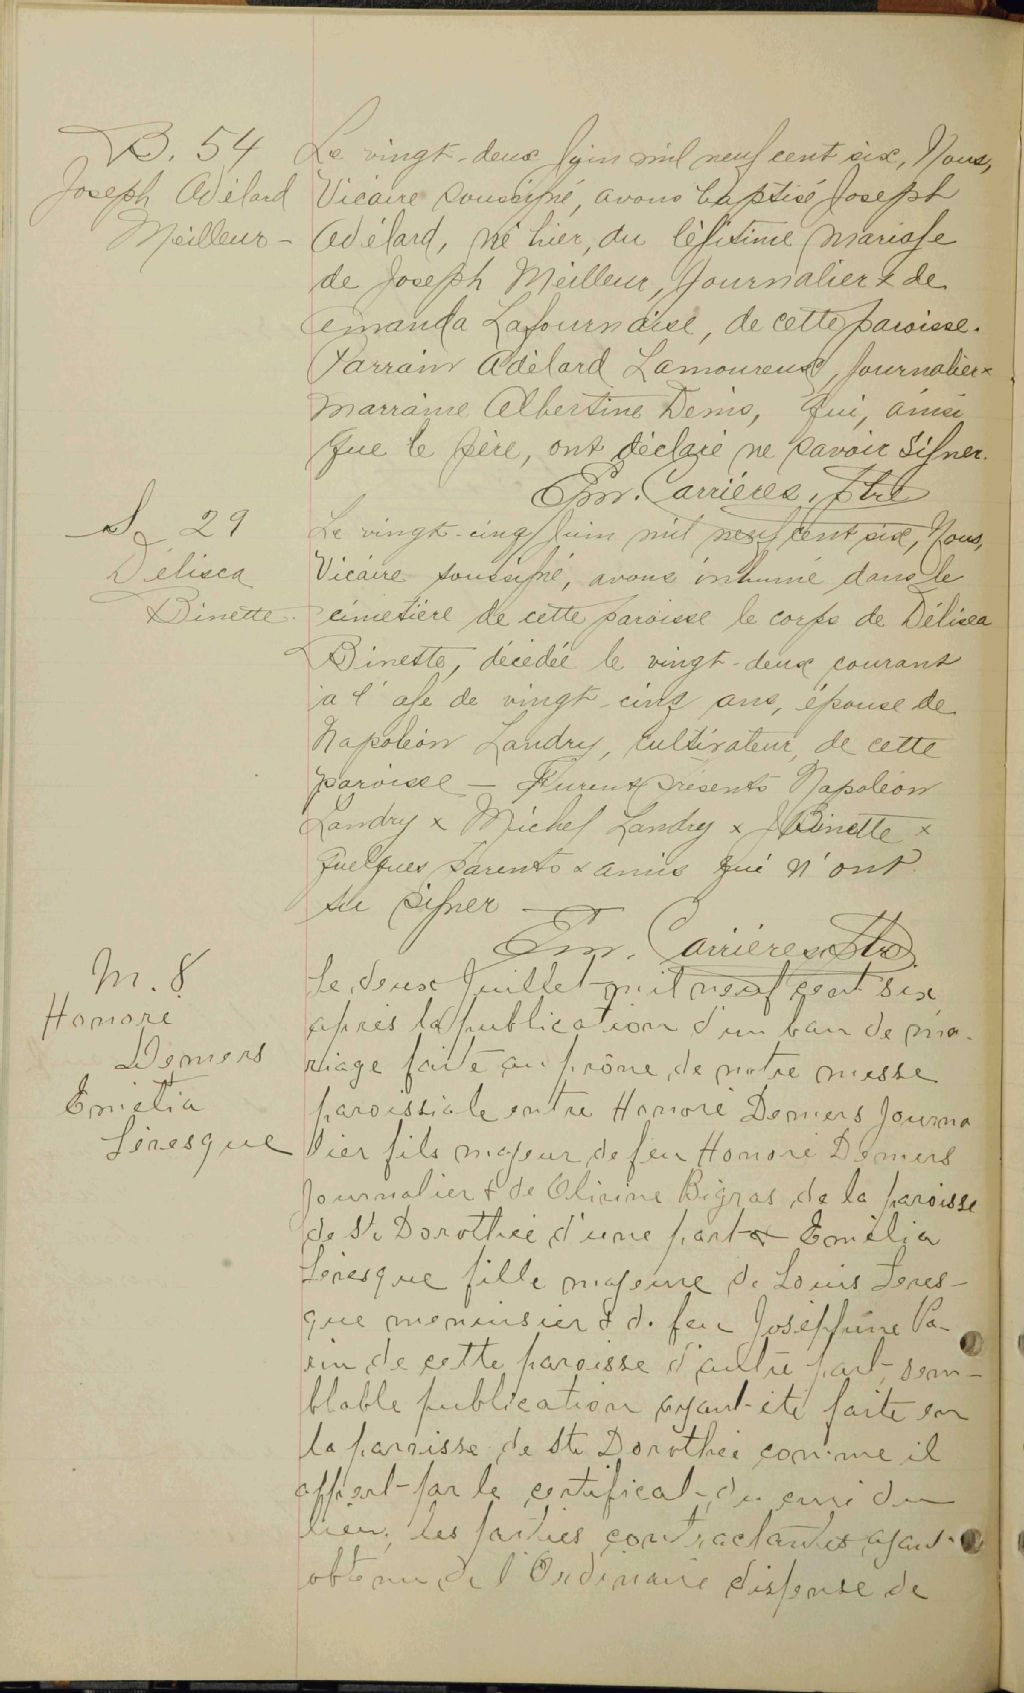 B. 54
Joseph Adélard
Meilleur -
Le vingt-deux Juin mil neuf cent six, Nous,
Vicaire soussigné, avons baptisé Joseph
Adélard, né hier, du légitime mariage
de Joseph Meilleur, journalier & de
Amanda Lafournaise, de cette paroisse.
Parrain Adélard Lamoureux, journalier &
marraine Albertine Denis, qui, ainsi
que le père, ont déclaré ne savoir signer.
Em. Carrières, Ptre
S. 29
Délisca
Binette.
Le vingt-cinq Juin mil neuf cent six, Nous,
Vicaire soussigné, avons inhumé dans le
cimetière de cette paroisse le corps de Délisca
Binette, décédée le vingt-deux courant
à l'age de vingt-cinq ans, épouse de
Napoléon Landry, cultivateur, de cette
paroisse - Furent présents Napoléon
Landry & Michel Landry & J Binette &
quelques parents & amis qui n'ont
su signer
Em. Carrières Ptre
M. 8
Honoré
Demers
Emélia
Lévesque
Le deux Juillet mil neuf cent six
après la publication d'un ban de ma-
riage faite au prône de notre messe
paroissiale entre Honoré Demers journa
lier fils majeur de feu Honoré Demers
journalier & de Olivine Bigras de la paroisse
de Ste Dorothée d'une part & Emélia
Lévesque fille majeure de Louis Léves-
que menuisier & de feu Joséphine Pa-
 de cette paroisse d'autre part, sem-
blable publication ayant été faite en
la paroisse de Ste Dorothée comme il
appert par le certificat du curé du
lieu; les parties contractantes ayant
obtenu de l'Ordinaire dispense de